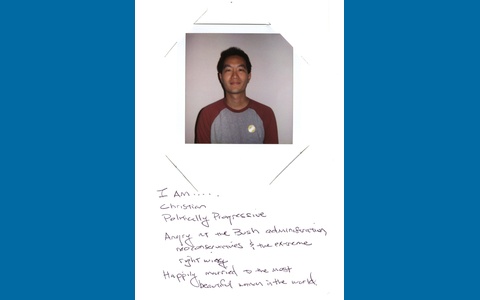 I AM.....
Christian
Politically Progressive
Angry at the Bush administration,
neoconservatives & the extreme
right wing
Happily married to the most
beautiful woman in the world